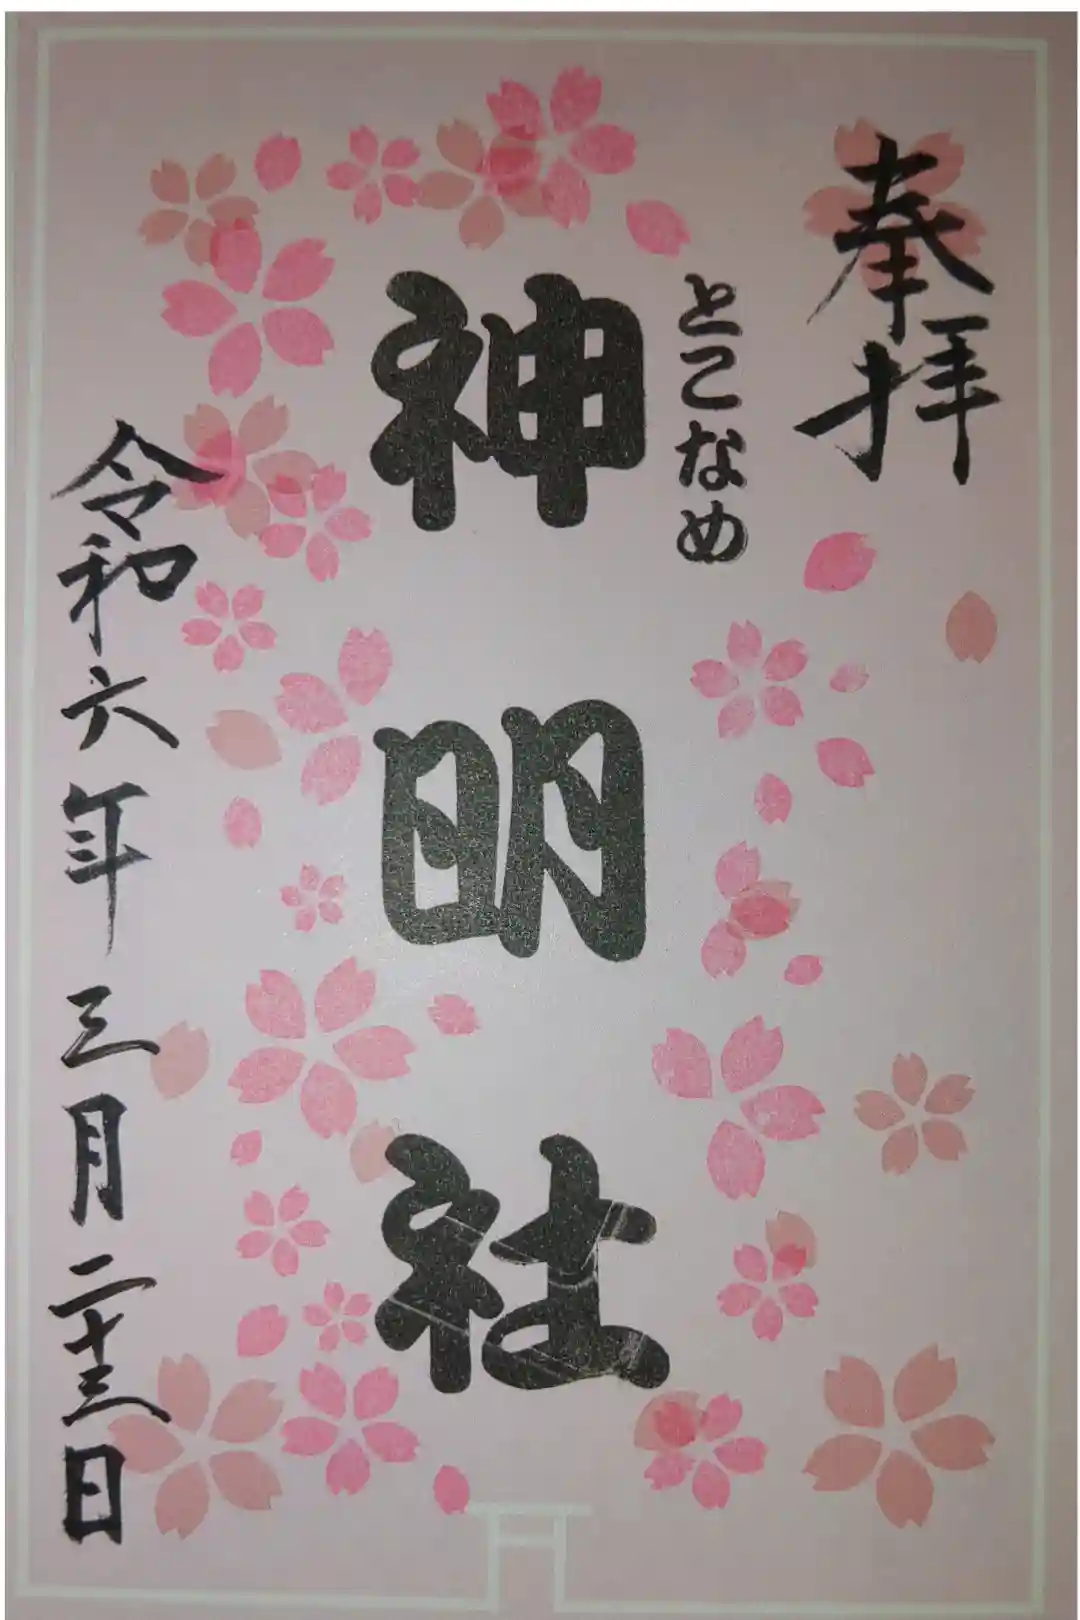 奉拝
とこなめ
神明社
令和六年三月二十三日